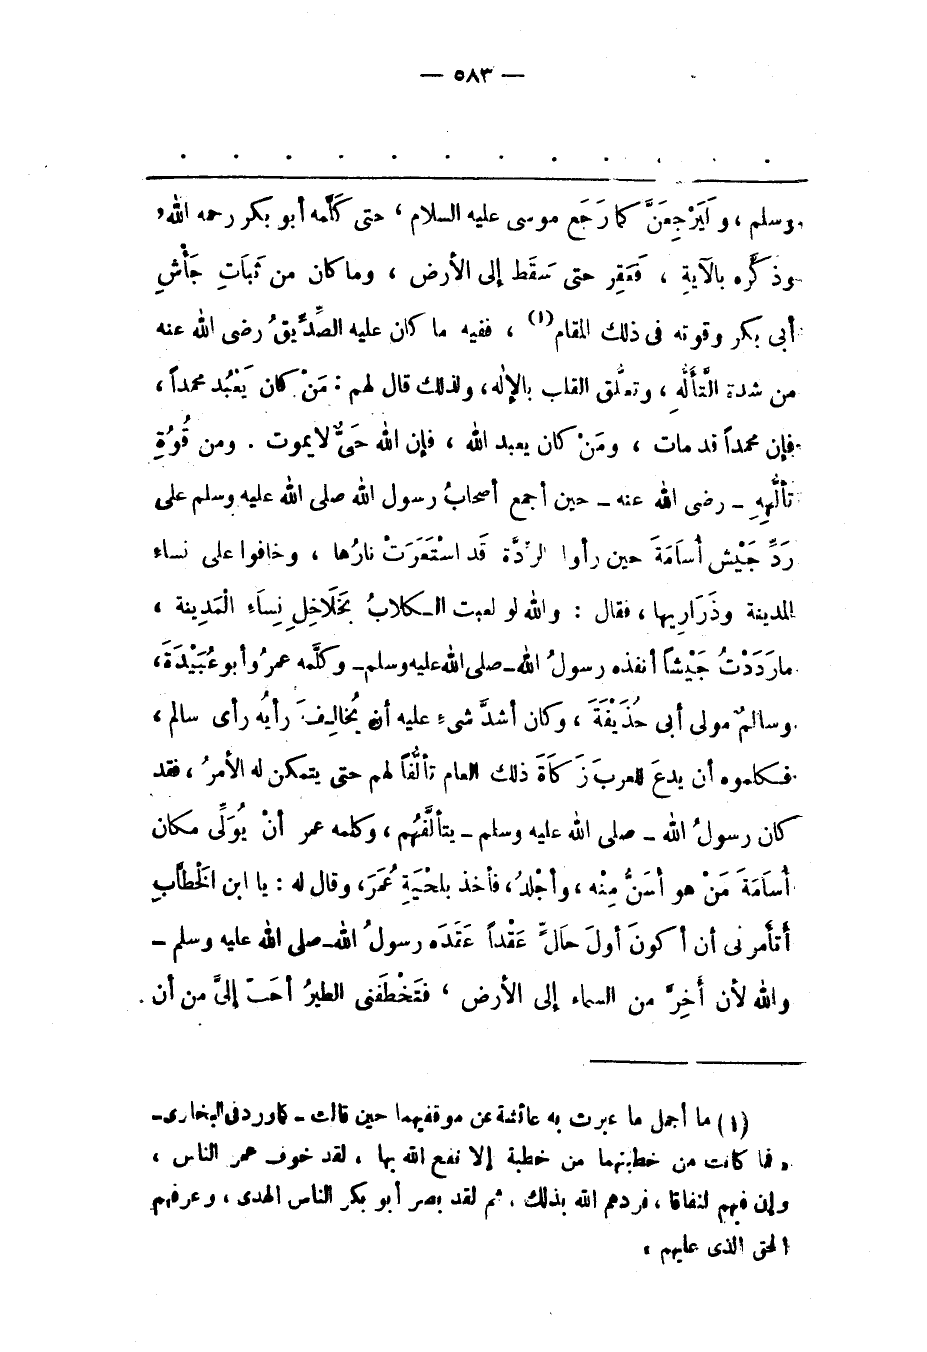 — ٥٨٣ —
وسلم ، و لَيَرْجِعَنَّ كما رَجَع موسى عليه السلام ، حتى كَلَّمه أبو بكر رحمه الله ،
وذكَّره بالآيةِ ، فَعَقِر حتى سَقَط إلى الأرض ، وما كان من ثَبَاتِ جَأْشِ
أبى بكر وقوته فى ذلك المقام (١) ، ففيه ما كان عليه الصِّدِّيقُ رضى الله عنه
من شدة التَّأَلُّهِ ، وتعلُّق القلب بالإلٰه ، ولذلك قال لهم : مَنْ كان يَعْبُد محمداً ،
فإن محمداً قد مات ، ومَنْ كان يعبد الله ، فإن الله حَىٌّ لا يموت . ومن قُوَّةِ
تألُّهِهِ ــ رضى الله عنه ــ حين أجمع أصحابُ رسول الله صلى الله عليه وسلم على
رَدِّ جَيْش أُسَامَةَ حين رأوا الرِّدَّة قَد اسْتَعَرَتْ نارُها ، وخافوا على نساء
المدينة وذَرَارِيها ، فقال : والله لو لعبت الكلابُ بِخَلَاخِلِ نِسَاءِ الْمَدِينة ،
ما رَدَدْتُ جَيْشاً أنفذه رسولُ الله ــ صلى الله عليه وسلم ــ وكلَّمه عمرُ وأبو عُبَيْدَةَ ،
وسالمٌ مولى أبى حُذَيْفَةَ ، وكان أشدَّ شىءِ عليه أن يُخالِفَ رأيُه رأى سالم ،
فكلموه أن يدعَ للعربَ زَكَاةَ ذلك العام تألُّفاً لهم حتى يتمكن له الأمرُ ، فقد
كان رسولُ الله ــ صلى الله عليه وسلم ــ يتألَّفُهُم ، وكلمه عمر أنْ يُوَلِّى مكان
أُسَامَةَ مَنْ هو أسَنُّ مِنْه ، وأجْلدُ ، فأخذ بلحْيَةِ عُمَرَ ، وقال له : يا ابن الْخَطَّابِ
أتأمرنى أن أكونَ أولَ حَالٍّ عَقْداً عَقَدَه رسولُ الله ــ صلى الله عليه وسلم ــ
والله لأن أَخِرَّ من السماء إلى الأرض ، فتَخْطَفَنى الطيرُ أحَبّ إلىَّ من أن
(١) ما أجمل ما عبرت به عائشة عن موقفيهما حين قالت ــ كما ورد فى البخارى ــ
« فما كانت من خطبتهما من خطبة إلا نفع الله بها ، لقد خوف عمر الناس ،
وإن فيهم لنفاقا ، فردهم الله بذلك . ثم لقد بصر أبو بكر الناس الهدى ، وعرفهم
الحق الذى عليهم »